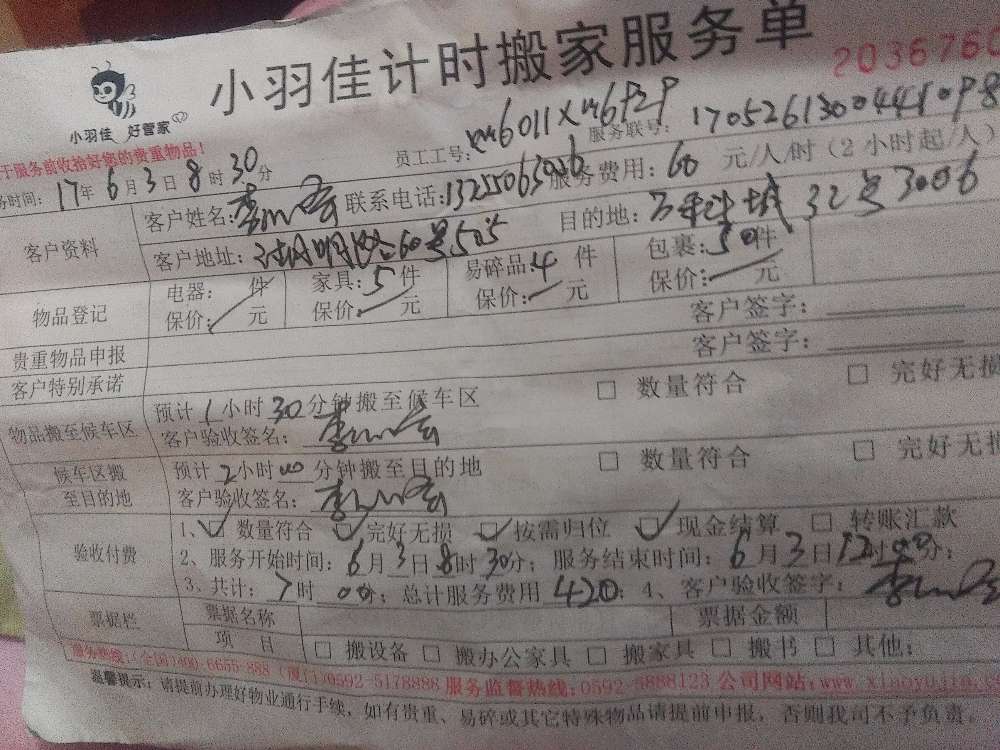 小羽佳计时搬家服务单
2036760
小羽佳 好管家
于服务前收拾好您的贵重物品!
员工工号: xm6011×xm6929
服务联号: 17052613004441098
务时间: 17年6月3日8时30分
服务费用: 60 元/人/时(2小时起/人)
客户资料
客户姓名: 联系电话: 目的地: 32号3006
客户地址: 60号505
物品登记
电器: 件 家具: 5件 易碎品: 4 件 包裹: 50件
保价: 元 保价: 元 保价: 元 保价: 元
贵重物品申报 客户签字:
客户特别承诺 客户签字:
物品搬至候车区
预计1小时30分钟搬至候车区 □ 数量符合 □ 完好无损
客户验收签名:
候车区搬至目的地
预计2小时00分钟搬至目的地 □ 数量符合 □ 完好无损
客户验收签名:
验收付费
1、☑ 数量符合 ☑ 完好无损 ☑ 按需归位 ☑ 现金结算 □ 转账汇款
2、服务开始时间: 6月3日8时30分; 服务结束时间: 6月3日12时00分;
3、共计: 7时00分; 总计服务费用 420; 4、客户验收签字:
票据栏 票据名称 票据金额
项 目 □ 搬设备 □ 搬办公家具 □ 搬家具 □ 搬书 □ 其他:
服务热线:(全国)400-6655-888 (厦门)0592-5178888 服务监督热线:0592-5888123 公司网站:www.xiaoyujia.
温馨提示: 请提前办理好物业通行手续,如有贵重、易碎或其它特殊物品请提前申报,否则我司不予负责。